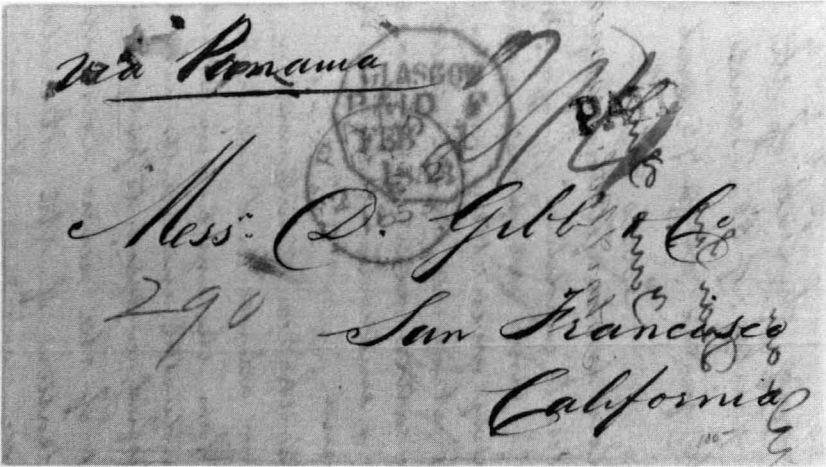 via Panama
GLASGOW
PAID
FEB
PAID
Mess.rs D. Gibb & Co
290
San Francisco
California